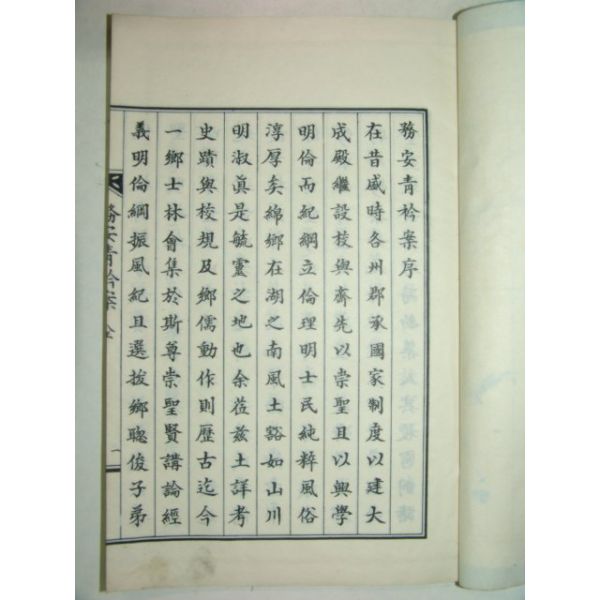 務安青衿案序
在昔盛時各州郡承國家制度以建大
成殿繼設校與齋先以崇聖且以興學
明倫而紀綱立倫理明士民純粹風俗
淳厚矣綿鄉在湖之南風土谿如山川
明淑眞是毓靈之地也余莅茲土詳考
史蹟與校規及鄉儒動作則歷古迄今
一鄉士林會集於斯尊崇聖賢講論經
義明倫綱振風紀且選拔鄉聰俊子弟
務安青衿案 全 一